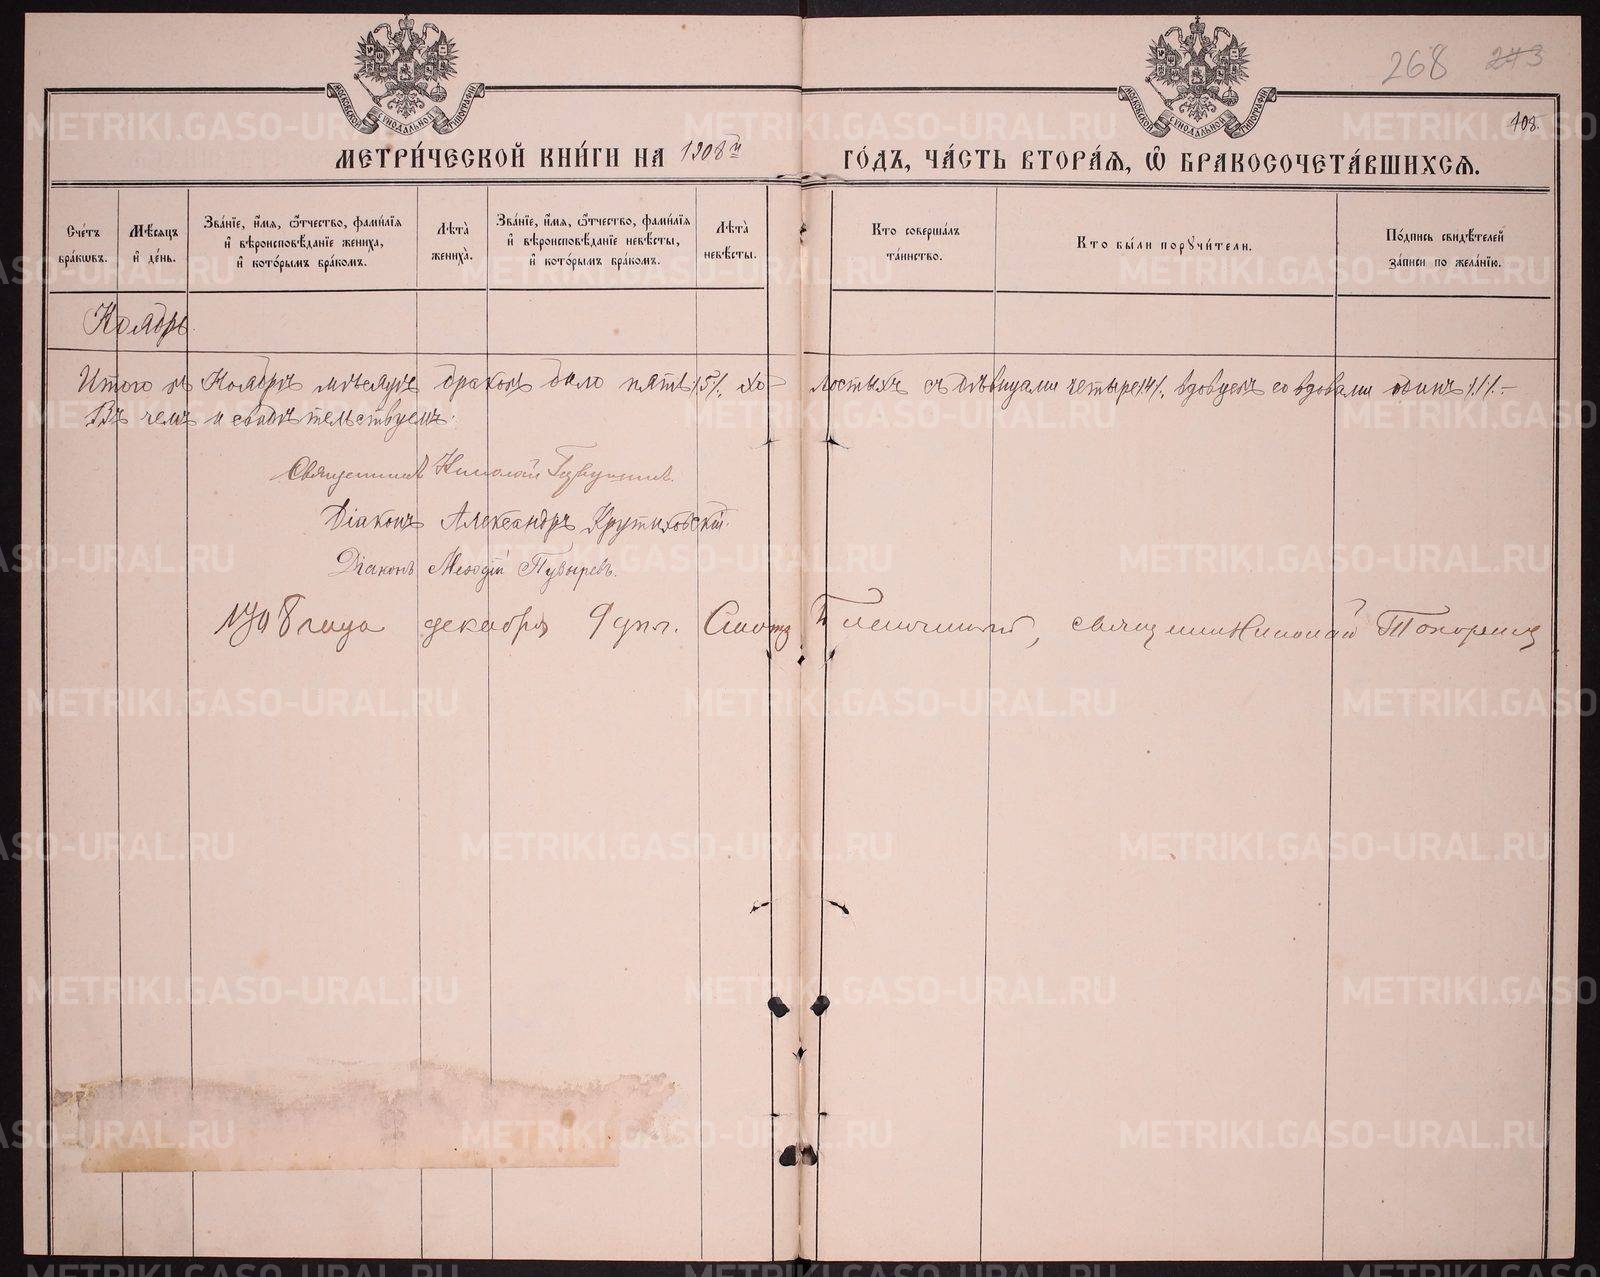 268 273
108.
МОСКОВСКОЙ СѴНОДАЛЬНОЙ ТИПОГРАФІИ
МОСКОВСКОЙ СѴНОДАЛЬНОЙ ТИПОГРАФІИ
МЕТРИ́ЧЕСКОЙ КНИ́ГИ НА 1908й ГО́ДЪ, ЧА́СТЬ ВТОРА́Я, Ѽ БРАКОСОЧЕТА́ВШИХСЯ.
Сче́тъ бра́кѡвъ.
Мѣ́сяцъ и҆ де́нь.
Зва́ніе, и҆́мя, ѻ҆́тчество, фами́лія и҆ вѣроисповѣ́даніе жениха̀, и҆ кото́рымъ бра́комъ.
Лѣ́та жениха̀.
Зва́ніе, и҆́мя, ѻ҆́тчество, фами́лія и҆ вѣроисповѣ́даніе невѣ́сты, и҆ кото́рымъ бра́комъ.
Лѣ́та невѣ́сты.
Кто̀ соверша́лъ та́инство.
Кто̀ бы́ли поручи́тели.
По́дпись свидѣ́телей за́писи по жела́нію.
Ноябрь.
Итого въ Ноябрѣ мѣсяцѣ браковъ было пять /5/, хо-лостыхъ съ дѣвицами четыре /4/, вдовецъ со вдовами одинъ /1/-
Въ чемъ и свидѣтельствуемъ:
Священникъ Николай
Діаконъ Александръ Крутиховскій.
Діаконъ Меѳодій Пузыревъ.
1908 года декабря 9 дня. священникъ Николай Топорковъ
METRIKI.GASO-URAL.RU